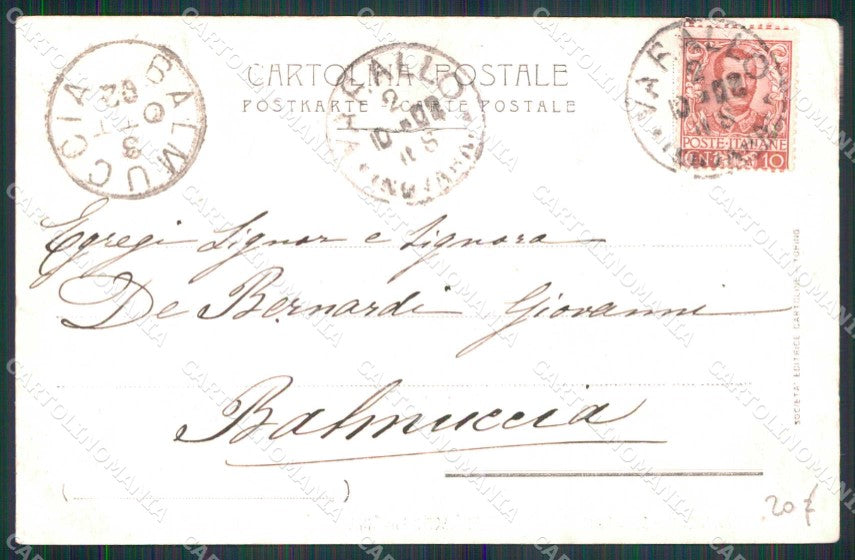 CARTOLINA POSTALE
POSTKARTE — CARTE POSTALE
BALMUCCIA
VARALLO
VARALLO
POSTE ITALIANE
10
Egregi Signor e Signora
De Bernardi Giovanni
Balmuccia
( )
SOCIETÀ EDITRICE CARTOLINE TORINO
20 €
CARTOLINOMANIA